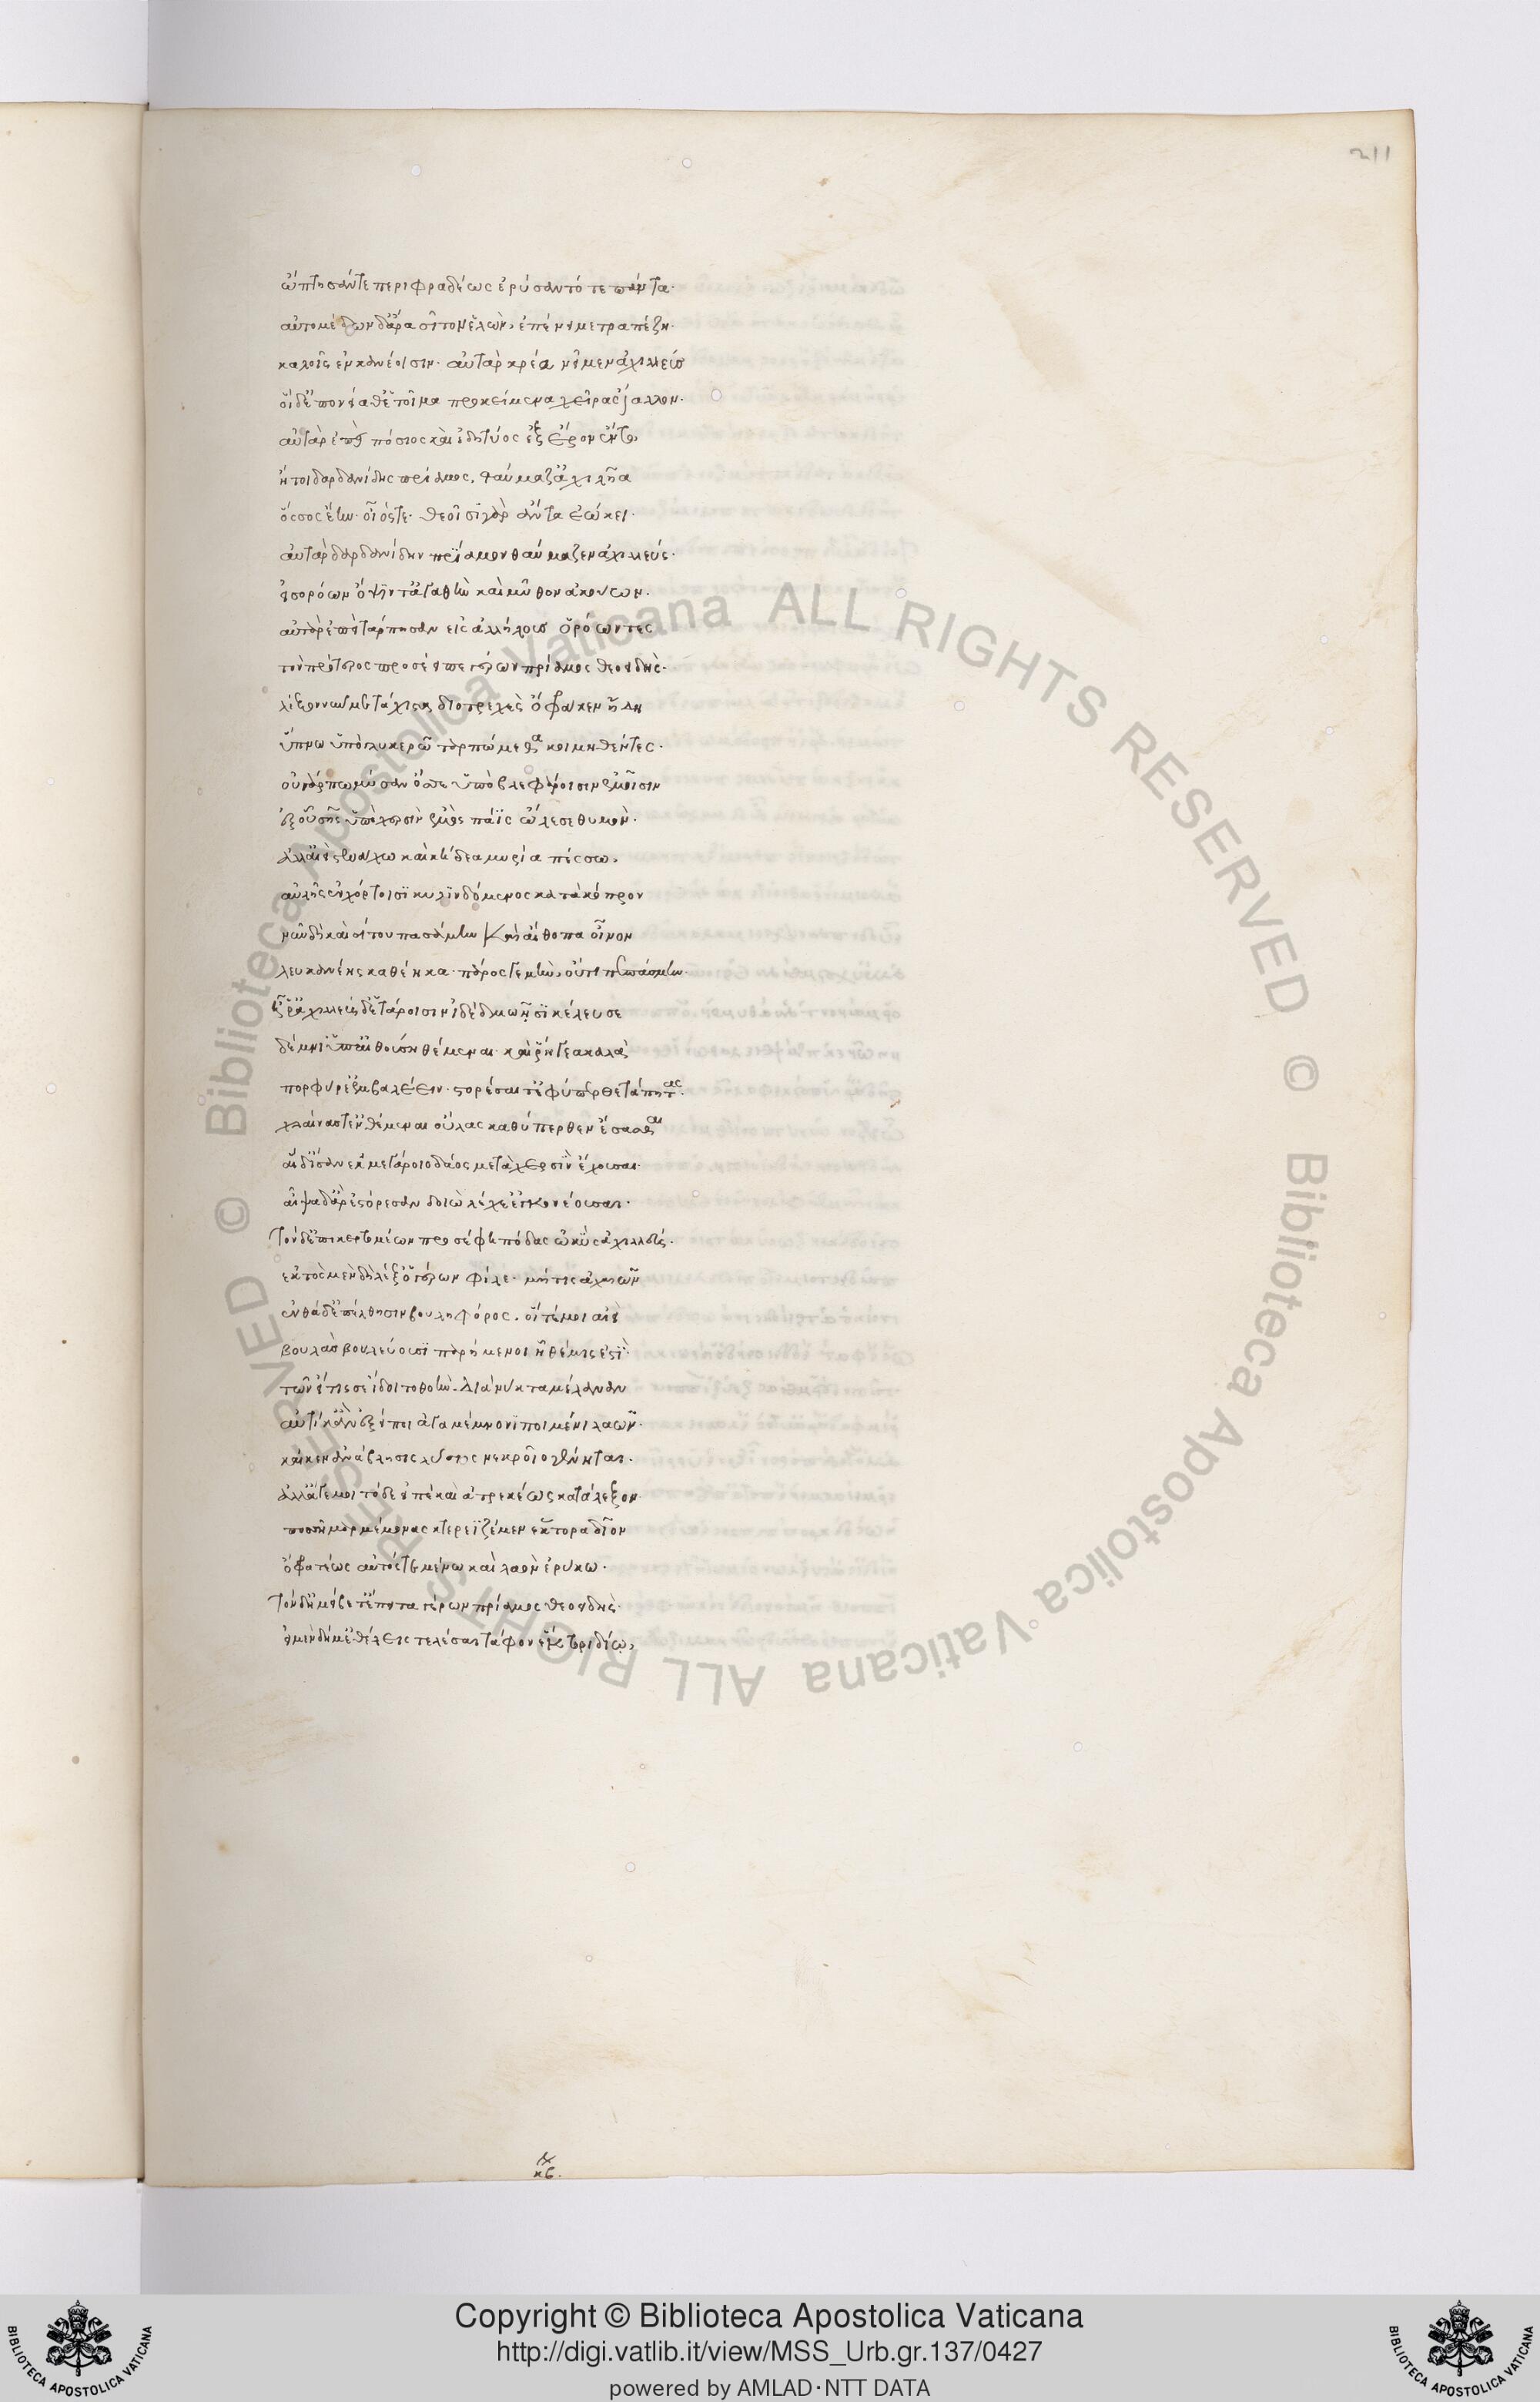 211
ὤπτησάν τε περιφραδέως ἐρύσαντό τε πάντα·
αὐτομέδων δ' ἄρα σῖτον ἑλὼν, ἐπένειμε τραπέζη·
καλοῖς ἐν κανέοισιν· αὐτὰρ κρέα νεῖμεν ἀχιλλεύς
οἱ δ' ἐπ' ὀνείαθ' ἑτοῖμα προκείμενα χεῖρας ἴαλλον·
αὐτὰρ ἐπεὶ πόσιος καὶ ἐδητύος ἐξ ἔρον ἕντο,
ἤτοι δαρδανίδης πρίαμος, θαύμαζ' ἀχιλῆα
ὅσσος ἔην· οἷός τε· θεοῖσι γὰρ ἄντα ἐώκει·
αὐτὰρ δαρδανίδην πρίαμον θαύμαζεν ἀχιλλεύς·
εἰσορόων ὄψίν τ' ἀγαθὴν καὶ μῦθον ἀκούων·
αὐτὰρ ἐπεὶ τάρπησαν εἰς ἀλλήλους ὁρόωντες
τὸν πρότερος προσέειπε γέρων πρίαμος θεοειδής·
λέξον νῦν με τάχιστα διοτρεφὲς ὄφρα κεν ἤδη
ὕπνω ὕπο γλυκερῶ ταρπώμεθα κοιμηθέντες·
οὐ γάρ πω μύσαν ὄσσε ὑπὸ βλεφάροισιν ἐμοῖσιν
ἐξ οὗ σῆς ὑπὸ χερσὶν ἐμὸς πάϊς ὤλεσε θυμὸν·
ἀλλ' αἰεὶ στενάχω καὶ κήδεα μυρία πέσσω,
αὐλῆς ἐν χόρτοισι κυλινδόμενος κατὰ κόπρον
νῦν δὴ καὶ σίτου πασάμην καὶ αἴθοπα οἶνον
λευκανίης καθέηκα· πάρος γε μὲν, οὔτι πεπάσμην·
ἦ ῥ' ἀχιλλεὺς δ' ἑτάροισιν ἰδὲ δμωῇσι κέλευσε
δέμνι' ὑπ' αἰθούση θέμεναι· καὶ ῥήγεα καλὰ
πορφύρε' ἐμβαλέειν· στορέσαι τ' ἐφύπερθε τάπητας·
χλαίνας τ' ἐνθέμεναι οὔλας καθύπερθεν ἕσασθαι
αἱ δ' ἴσαν ἐκ μεγάροιο δάος μετὰ χερσὶν ἔχουσαι·
αἶψα δ' ἄρ' ἐστόρεσαν δοιὼ λέχε' ἐγκονέουσαι·
Τὸν δ' ἐπικερτομέων προσέφη πόδας ὠκὺς ἀχιλλεύς·
ἐκτὸς μὲν δὴ λέξο γέρων φίλε· μήτις ἀχαιῶν
ἐνθάδ' ἐπέλθησιν βουληφόρος· οἵ τέ μοι αἰεὶ
βουλὰς βουλεύουσι παρήμενοι ἣ θέμις ἐστὶ·
τῶν εἴ τις σε ἴδοιτο θοὴν διὰ νύκτα μέλαιναν
αὐτίκ' ἂν ἐξείποι ἀγαμέμνονι ποιμένι λαῶν·
καί κεν ἀνάβλησις λύσιος νεκροῖο γένηται·
ἀλλ' ἄγε μοι τόδε εἰπὲ καὶ ἀτρεκέως κατάλεξον
ποσσῆμαρ μέμονας κτερεϊζέμεν ἕκτορα δῖον
ὄφρα τέως αὐτός τε μένω καὶ λαὸν ἐρύκω·
Τὸν δ' ἠμείβετ' ἔπειτα γέρων πρίαμος θεοειδής·
εἰ μὲν δή μ' ἐθέλεις τελέσαι τάφον ἕκτορι δίῳ,
Copyright © Biblioteca Apostolica Vaticana
http://digi.vatlib.it/view/MSS_Urb.gr.137/0427
powered by AMLAD·NTT DATA